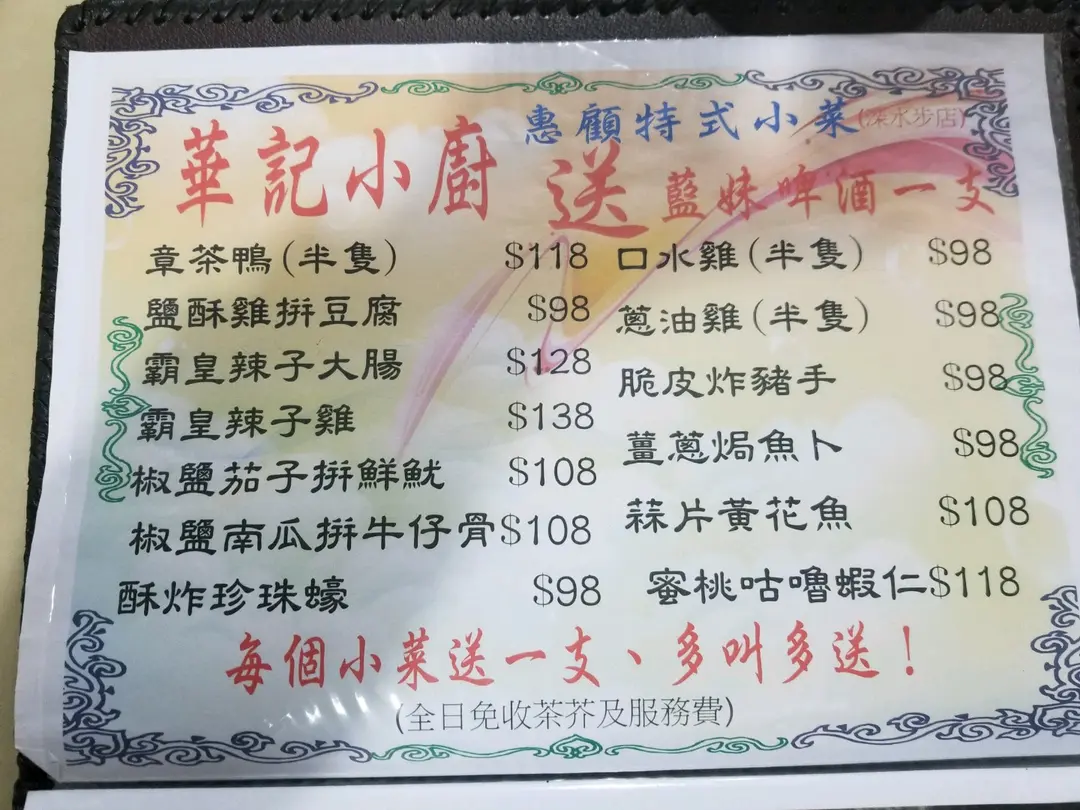 惠顧特式小菜(深水步店)
華記小廚 送 藍妹啤酒一支
章茶鴨(半隻) $118 口水雞(半隻) $98
鹽酥雞拼豆腐 $98 蔥油雞(半隻) $98
霸皇辣子大腸 $128 脆皮炸豬手 $98
霸皇辣子雞 $138 薑蔥焗魚卜 $98
椒鹽茄子拼鮮魷 $108 蒜片黃花魚 $108
椒鹽南瓜拼牛仔骨$108 蜜桃咕嚕蝦仁$118
酥炸珍珠蠔 $98
每個小菜送一支、多叫多送！
(全日免收茶芥及服務費)